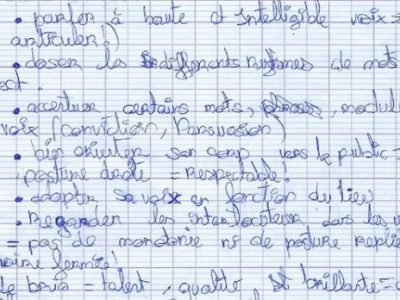 • parler à haute et intelligible voix =
articuler!)
• doser les différents rythmes de mots
ect.
• accentuer certains mots, phrases, module
voix (conviction, Persuasion)
• bien orienter son corp vers le public =
posture droite = respectable!
• adapter sa voix en fonction du lieu
• Regarder les interlocuteur dans les y
= pas de monotonie ni de posture replié
voire fermée!
le brio = talent, qualité, et brillante =